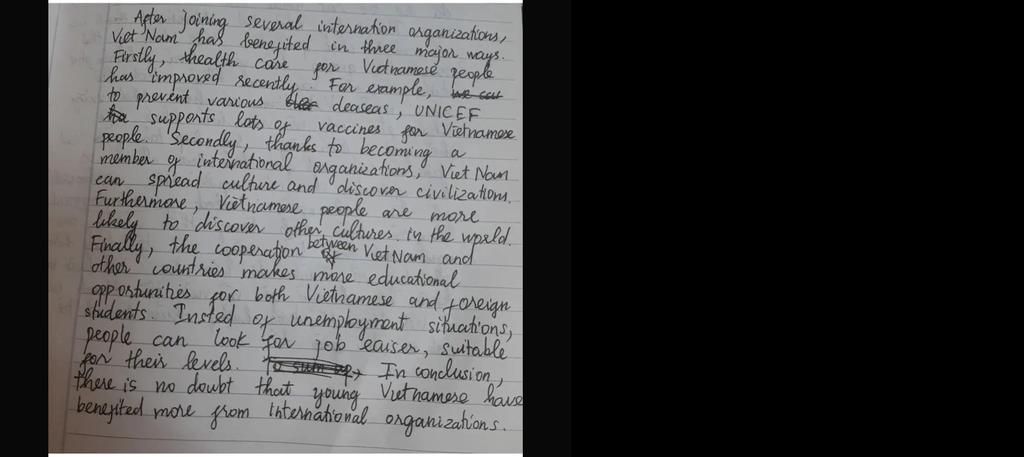 After joining several internation organizations,
Viet Nam has benefited in three major ways.
Firstly, health care for Vietnamese people
has improved recently. For example, we can
to prevent various deaseas, UNICEF
supports lots of vaccines for Vietnamese
people. Secondly, thanks to becoming a
member of international organizations, Viet Nam
can spread culture and discover civilizations.
Furthermore, Vietnamese people are more
likely to discover other cultures in the world.
Finally, the cooperation between Viet Nam and
other countries makes more educational
opportunities for both Vietnamese and foreign
students. Insted of unemployment situations,
people can look for job eaiser, suitable
for their levels. To sum up, In conclusion,
there is no doubt that young Vietnamese have
benefited more from international organizations.